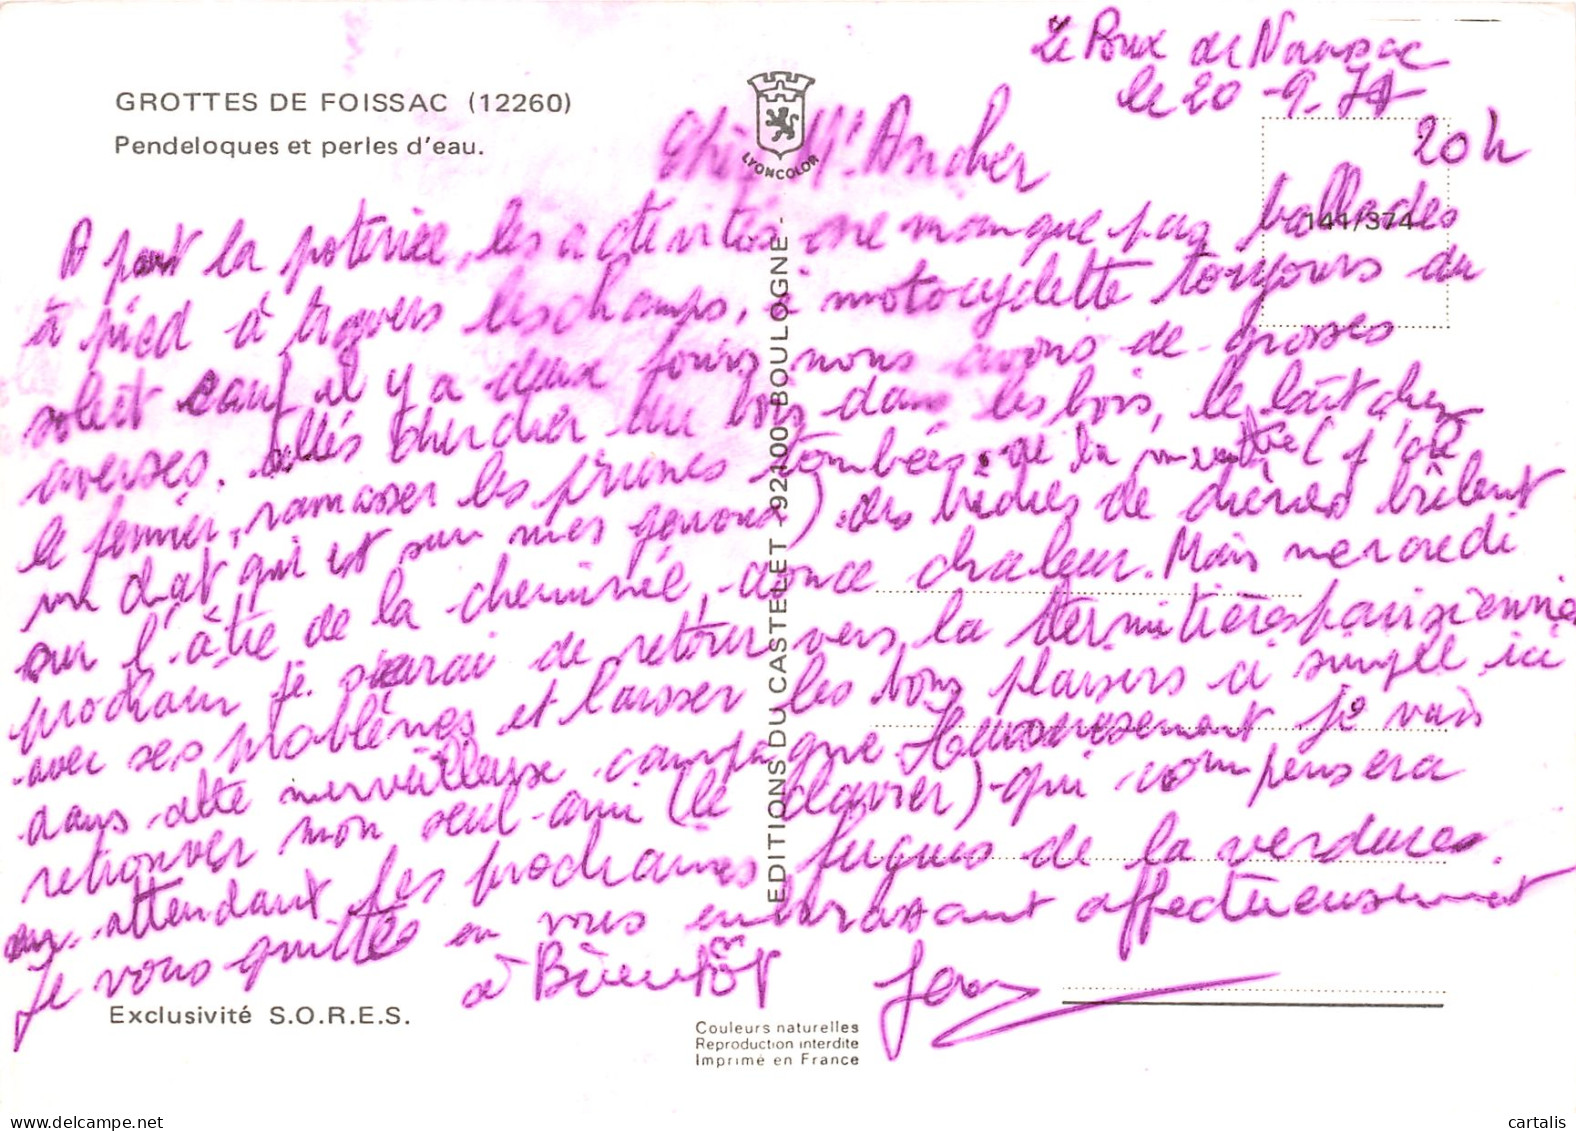 Le Poux de Naussac
le 20-9-79
20h
GROTTES DE FOISSAC (12260)
Pendeloques et perles d'eau.
LYONCOLOR
141/374
Mr. Ancher
A part la poterie, les activités ne manque pas ballades
à pied à travers les champs, motocyclette toujours du
soleil sauf il y a deux jours nous avons de grosses
averses. allés chercher du bois dans les bois, le lait chez
le fermier, ramasser les prunes tombées, de la (j'ai
un chat qui est sur mes genoux) des bûches de chênes brûlent
sur l'âtre de la cheminée, douce chaleur. Mais mercredi
prochain je serai de retour vers la termitières parisienne
avec ses problèmes et laisser les bons plaisirs si simple ici
dans cette merveilleuse campagne Heureusement je vais
retrouver mon seul ami (le clavier) qui compensera
en attendant les prochaines fugues de la verdure.
Je vous quittes en vous embrassant affectueusement
à Bientôt Jean
EDITIONS DU CASTELET - 92100 BOULOGNE -
Exclusivité S.O.R.E.S.
Couleurs naturelles
Reproduction interdite
Imprimé en France
delcampe.net
cartalis